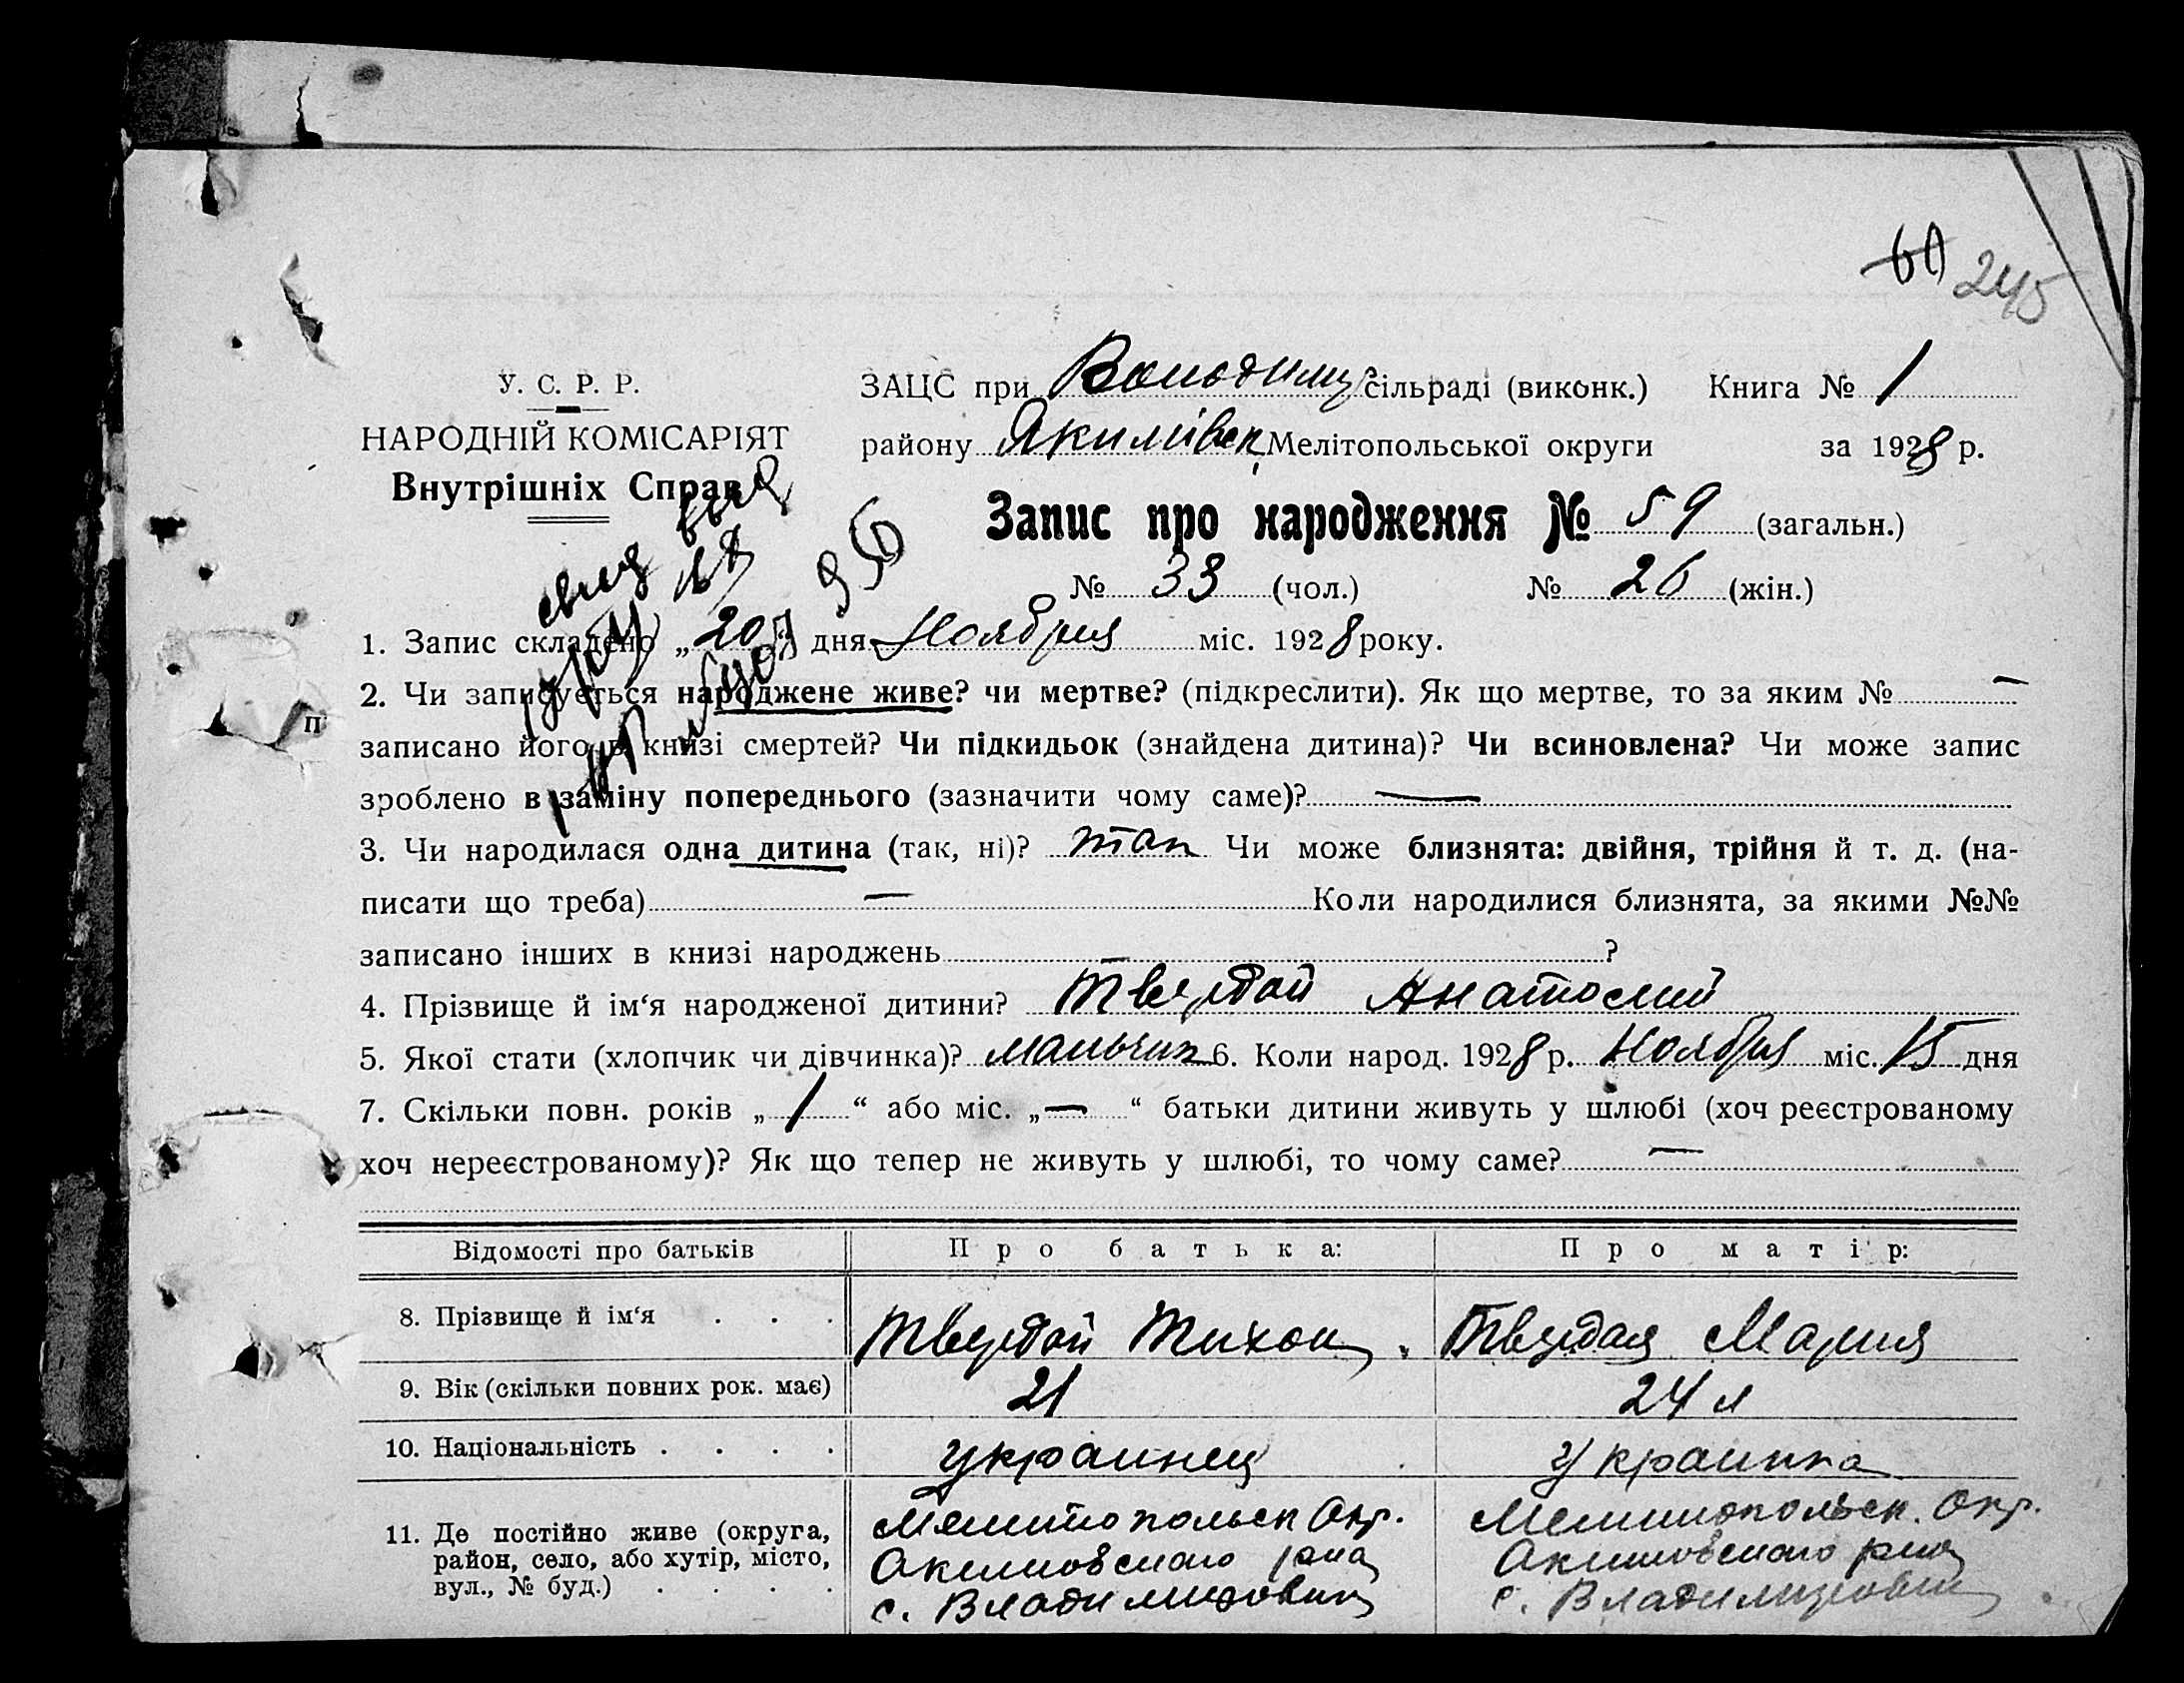 60 245
У. С. Р. Р.
НАРОДНІЙ КОМІСАРІЯТ
Внутрішніх Справ
ЗАЦС при Володимир сільраді (виконк.) Книга № 1
району Якимівск Мелітопольської округи за 1928 р.
Запис про народження № 59 (загальн.)
№ 33 (чол.) № 26 (жін.)
1. Запис складено „20“ дня Ноября міс. 1928 року.
2. Чи записується народжене живе? чи мертве? (підкреслити). Як що мертве, то за яким № —
записано його в книзі смертей? Чи підкидьок (знайдена дитина)? Чи всиновлена? Чи може запис
зроблено в заміну попереднього (зазначити чому саме)? —
3. Чи народилася одна дитина (так, ні)? так Чи може близнята: двійня, трійня й т. д. (на-
писати що треба) — Коли народилися близнята, за якими №№
записано інших в книзі народжень — ?
4. Прізвище й ім‘я народженої дитини? Твердой Анатолий
5. Якої стати (хлопчик чи дівчинка)? мальчик 6. Коли народ. 1928 р. Ноября міс. 15 дня
7. Скільки повн. років „ 1 “ або міс. „ — “ батьки дитини живуть у шлюбі (хоч реєстрованому
хоч нереєстрованому)? Як що тепер не живуть у шлюбі, то чому саме? —
Відомості про батьків Про батька: Про матір:
8. Прізвище й ім‘я . . . Твердой Тихон. Твердая Мария
9. Вік (скільки повних рок. має) 21 24 л
10. Національність . . . . украинец украинка
11. Де постійно живе (округа, Мелитопольск Окр. Мелитопольск. Окр.
район, село, або хутір, місто, Акимовского рна Акимовского рна
вул., № буд.) . . . . с. Владимировки с. Владимировки